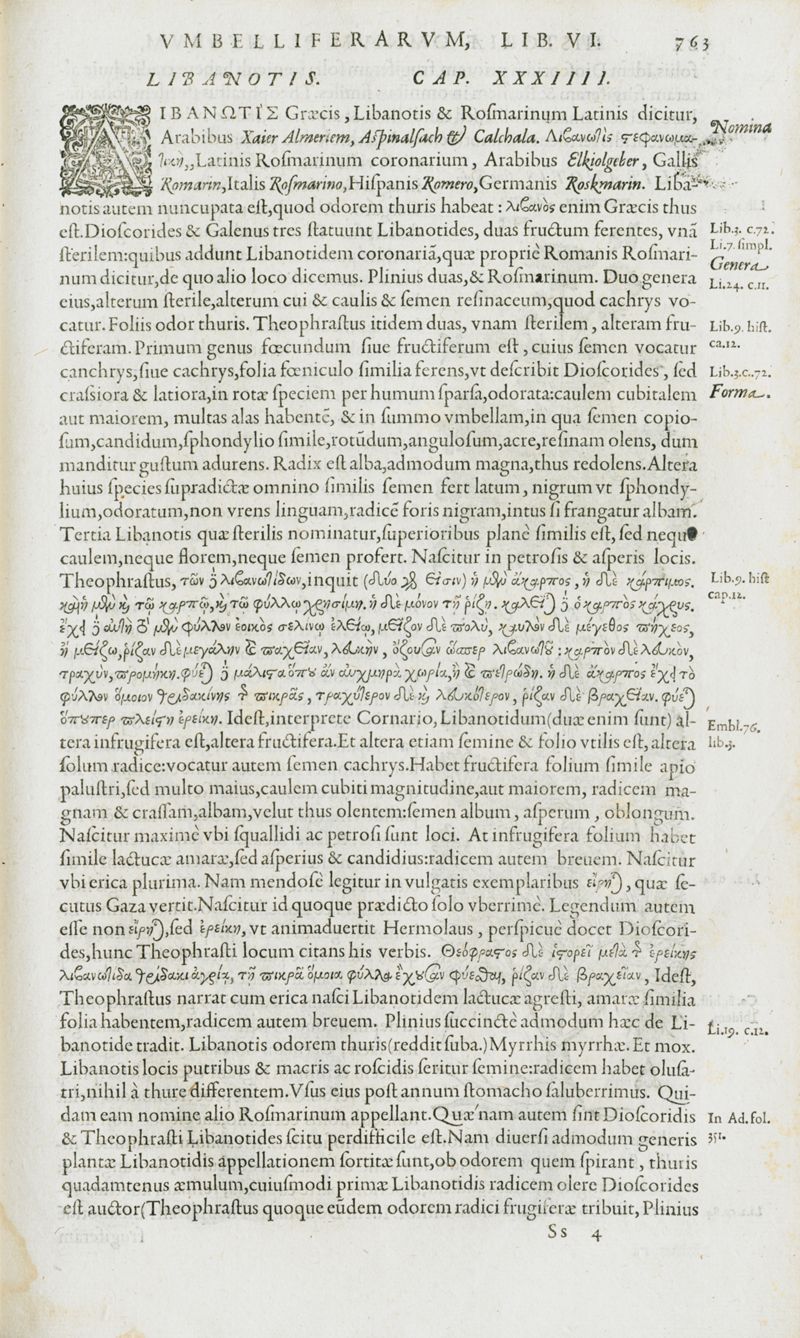 VMBELLIFERARVM, LIB. VI. 763
LIBANOTIS. CAP. XXXIIII.
LIBANΩTÌΣ Græcis, Libanotis & Roſmarinum Latinis dicitur,
Arabibus Xaier Almeriem, Aſpinalſach & Calchala. Λιβανωτὶς στεφανωμα- Nomina
τικὴ, Latinis Roſmarinum coronarium, Arabibus Elkiolgeber, Gallis
Romarin, Italis Roſmarino, Hiſpanis Romero, Germanis Roſkmarin. Liba-
notis autem nuncupata eſt, quod odorem thuris habeat: λιβανὸς enim Græcis thus
eſt. Dioſcorides & Galenus tres ſtatuunt Libanotides, duas fructum ferentes, vnā Lib.3. c.72.
ſterilem: quibus addunt Libanotidem coronariā, quæ propriè Romanis Roſmari- Li.7. ſimpl.
num dicitur, de quo alio loco dicemus. Plinius duas, & Roſmarinum. Duo genera Genera.
eius, alterum ſterile, alterum cui & caulis & ſemen reſinaceum, quod cachrys vo- Li.24. c.11.
catur. Foliis odor thuris. Theophraſtus itidem duas, vnam ſterilem, alteram fru- Lib.9. hiſt.
ctiferam. Primum genus fœcundum ſiue fructiferum eſt, cuius ſemen vocatur ca.12.
canchrys, ſiue cachrys, folia fœniculo ſimilia ferens, vt deſcribit Dioſcorides, ſed Lib.3.c..72.
craſsiora & latiora, in rotæ ſpeciem per humum ſparſa, odorata: caulem cubitalem Forma.
aut maiorem, multas alas habentē, & in ſummo vmbellam, in qua ſemen copio-
ſum, candidum, ſphondylio ſimile, rotūdum, anguloſum, acre, reſinam olens, dum
manditur guſtum adurens. Radix eſt alba, admodum magna, thus redolens. Altera
huius ſpecies ſupradictæ omnino ſimilis ſemen fert latum, nigrum vt ſphondy-
lium, odoratum, non vrens linguam, radicē foris nigram, intus ſi frangatur albam.
Tertia Libanotis quæ ſterilis nominatur, ſuperioribus planè ſimilis eſt, ſed neque
caulem, neque florem, neque ſemen profert. Naſcitur in petroſis & aſperis locis.
Theophraſtus, τῶν δὲ λιβανωτίδων, inquit (δύο γὰρ εἰσιν) ἡ μὲν ἄκαρπος, ἡ δὲ κάρπιμος. Lib.9. hiſt
καὶ ἡ μὲν καὶ τῷ καρπῷ, καὶ τῷ φύλλῳ χρησίμη. ἡ δὲ μόνον τῇ ῥίζῃ. καλεῖται δὲ ὁ καρπὸς κάχρυς. cap.12.
ἔχει δὲ αὐτὴ τὸ μὲν φύλλον ἐοικὸς σελίνῳ ἑλείῳ, μεῖζον δὲ πολύ, καυλὸν δὲ μέγεθος πήχεος,
ἢ μείζω, ῥίζαν δὲ μεγάλην καὶ παχεῖαν, λευκὴν, ὄζουσαν ὥσπερ λιβανωτός: καρπὸν δὲ λευκὸν,
τραχὺν, προμήκη. φύεται δὲ μάλιστα ὅπου ἂν αὐχμηρὰ χωρία, ἢ καὶ πετρώδη. ἡ δὲ ἄκαρπος ἔχει τὸ
φύλλον ὅμοιον θριδακίνης τῆς πικρᾶς, τραχύτερον δὲ καὶ λευκότερον, ῥίζαν δὲ βραχεῖαν. φύεται
ὅπουπερ πλείστη ἐρείκη. Ideſt, interprete Cornario, Libanotidum (duæ enim ſunt) al- Embl.76.
tera infrugifera eſt, altera fructifera. Et altera etiam ſemine & folio vtilis eſt, altera lib.3.
ſolum radice: vocatur autem ſemen cachrys. Habet fructifera folium ſimile apio
paluſtri, ſed multo maius, caulem cubiti magnitudine, aut maiorem, radicem ma-
gnam & craſſam, albam, velut thus olentem: ſemen album, aſperum, oblongum.
Naſcitur maximè vbi ſquallidi ac petroſi ſunt loci. At infrugifera folium habet
ſimile lactucæ amaræ, ſed aſperius & candidius: radicem autem breuem. Naſcitur
vbi erica plurima. Nam mendoſè legitur in vulgatis exemplaribus εἴρηται, quæ ſe-
cutus Gaza vertit. Naſcitur id quoque prædicto ſolo vberrimè. Legendum autem
eſſe non εἴρηται, ſed ἐρείκη, vt animaduertit Hermolaus, perſpicuè docet Dioſcori-
des, hunc Theophraſti locum citans his verbis. Θεόφραστος δὲ ἱστορεῖ μετὰ τῆς ἐρείκης
λιβανωτίδα θριδακι ἀγρίᾳ, τῇ πικρᾷ ὅμοια φύλλα ἔχουσαν φύεσθαι, ῥίζαν δὲ βραχεῖαν, Ideſt,
Theophraſtus narrat cum erica naſci Libanotidem lactucæ agreſti, amaræ ſimilia
folia habentem, radicem autem breuem. Plinius ſuccinctè admodum hæc de Li- Li.19. c.12.
banotide tradit. Libanotis odorem thuris (reddit ſuba.) Myrrhis myrrhæ. Et mox.
Libanotis locis putribus & macris ac roſcidis ſeritur ſemine: radicem habet oluſa-
tri, nihil à thure differentem. Vſus eius poſt annum ſtomacho ſaluberrimus. Qui-
dam eam nomine alio Roſmarinum appellant. Quænam autem ſint Dioſcoridis In Ad.fol.
& Theophraſti Libanotides ſcitu perdifficile eſt. Nam diuerſi admodum generis 351.
plantæ Libanotidis appellationem ſortitæ ſunt, ob odorem quem ſpirant, thuris
quadamtenus æmulum, cuiuſmodi primæ Libanotidis radicem olere Dioſcorides
eſt auctor (Theophraſtus quoque eūdem odorem radici frugiferæ tribuit, Plinius
Ss 4